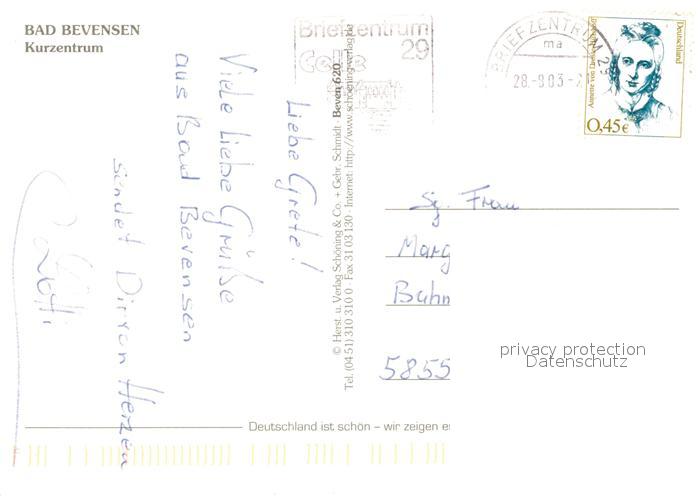 BAD BEVENSEN
Kurzentrum
Briefzentrum
29
Celle
BRIEFZENTRUM 29
ma
28.-8.03-
Deutschland
Annette von Droste-Hülshoff
0,45€
Liebe Grete!
Viele liebe Grüße
aus Bad Bevensen
sendet Dir von Herzen
© Herst. u. Verlag Schöning & Co. + Gebr. Schmidt · Beven 620
Tel. (04 51) 310 310 0 · Fax 31 03 130 · Internet: http://www.schoeningverlag.de
Sg. Frau
Marg
Bahn
5855
privacy protection
Datenschutz
Deutschland ist schön – wir zeigen es